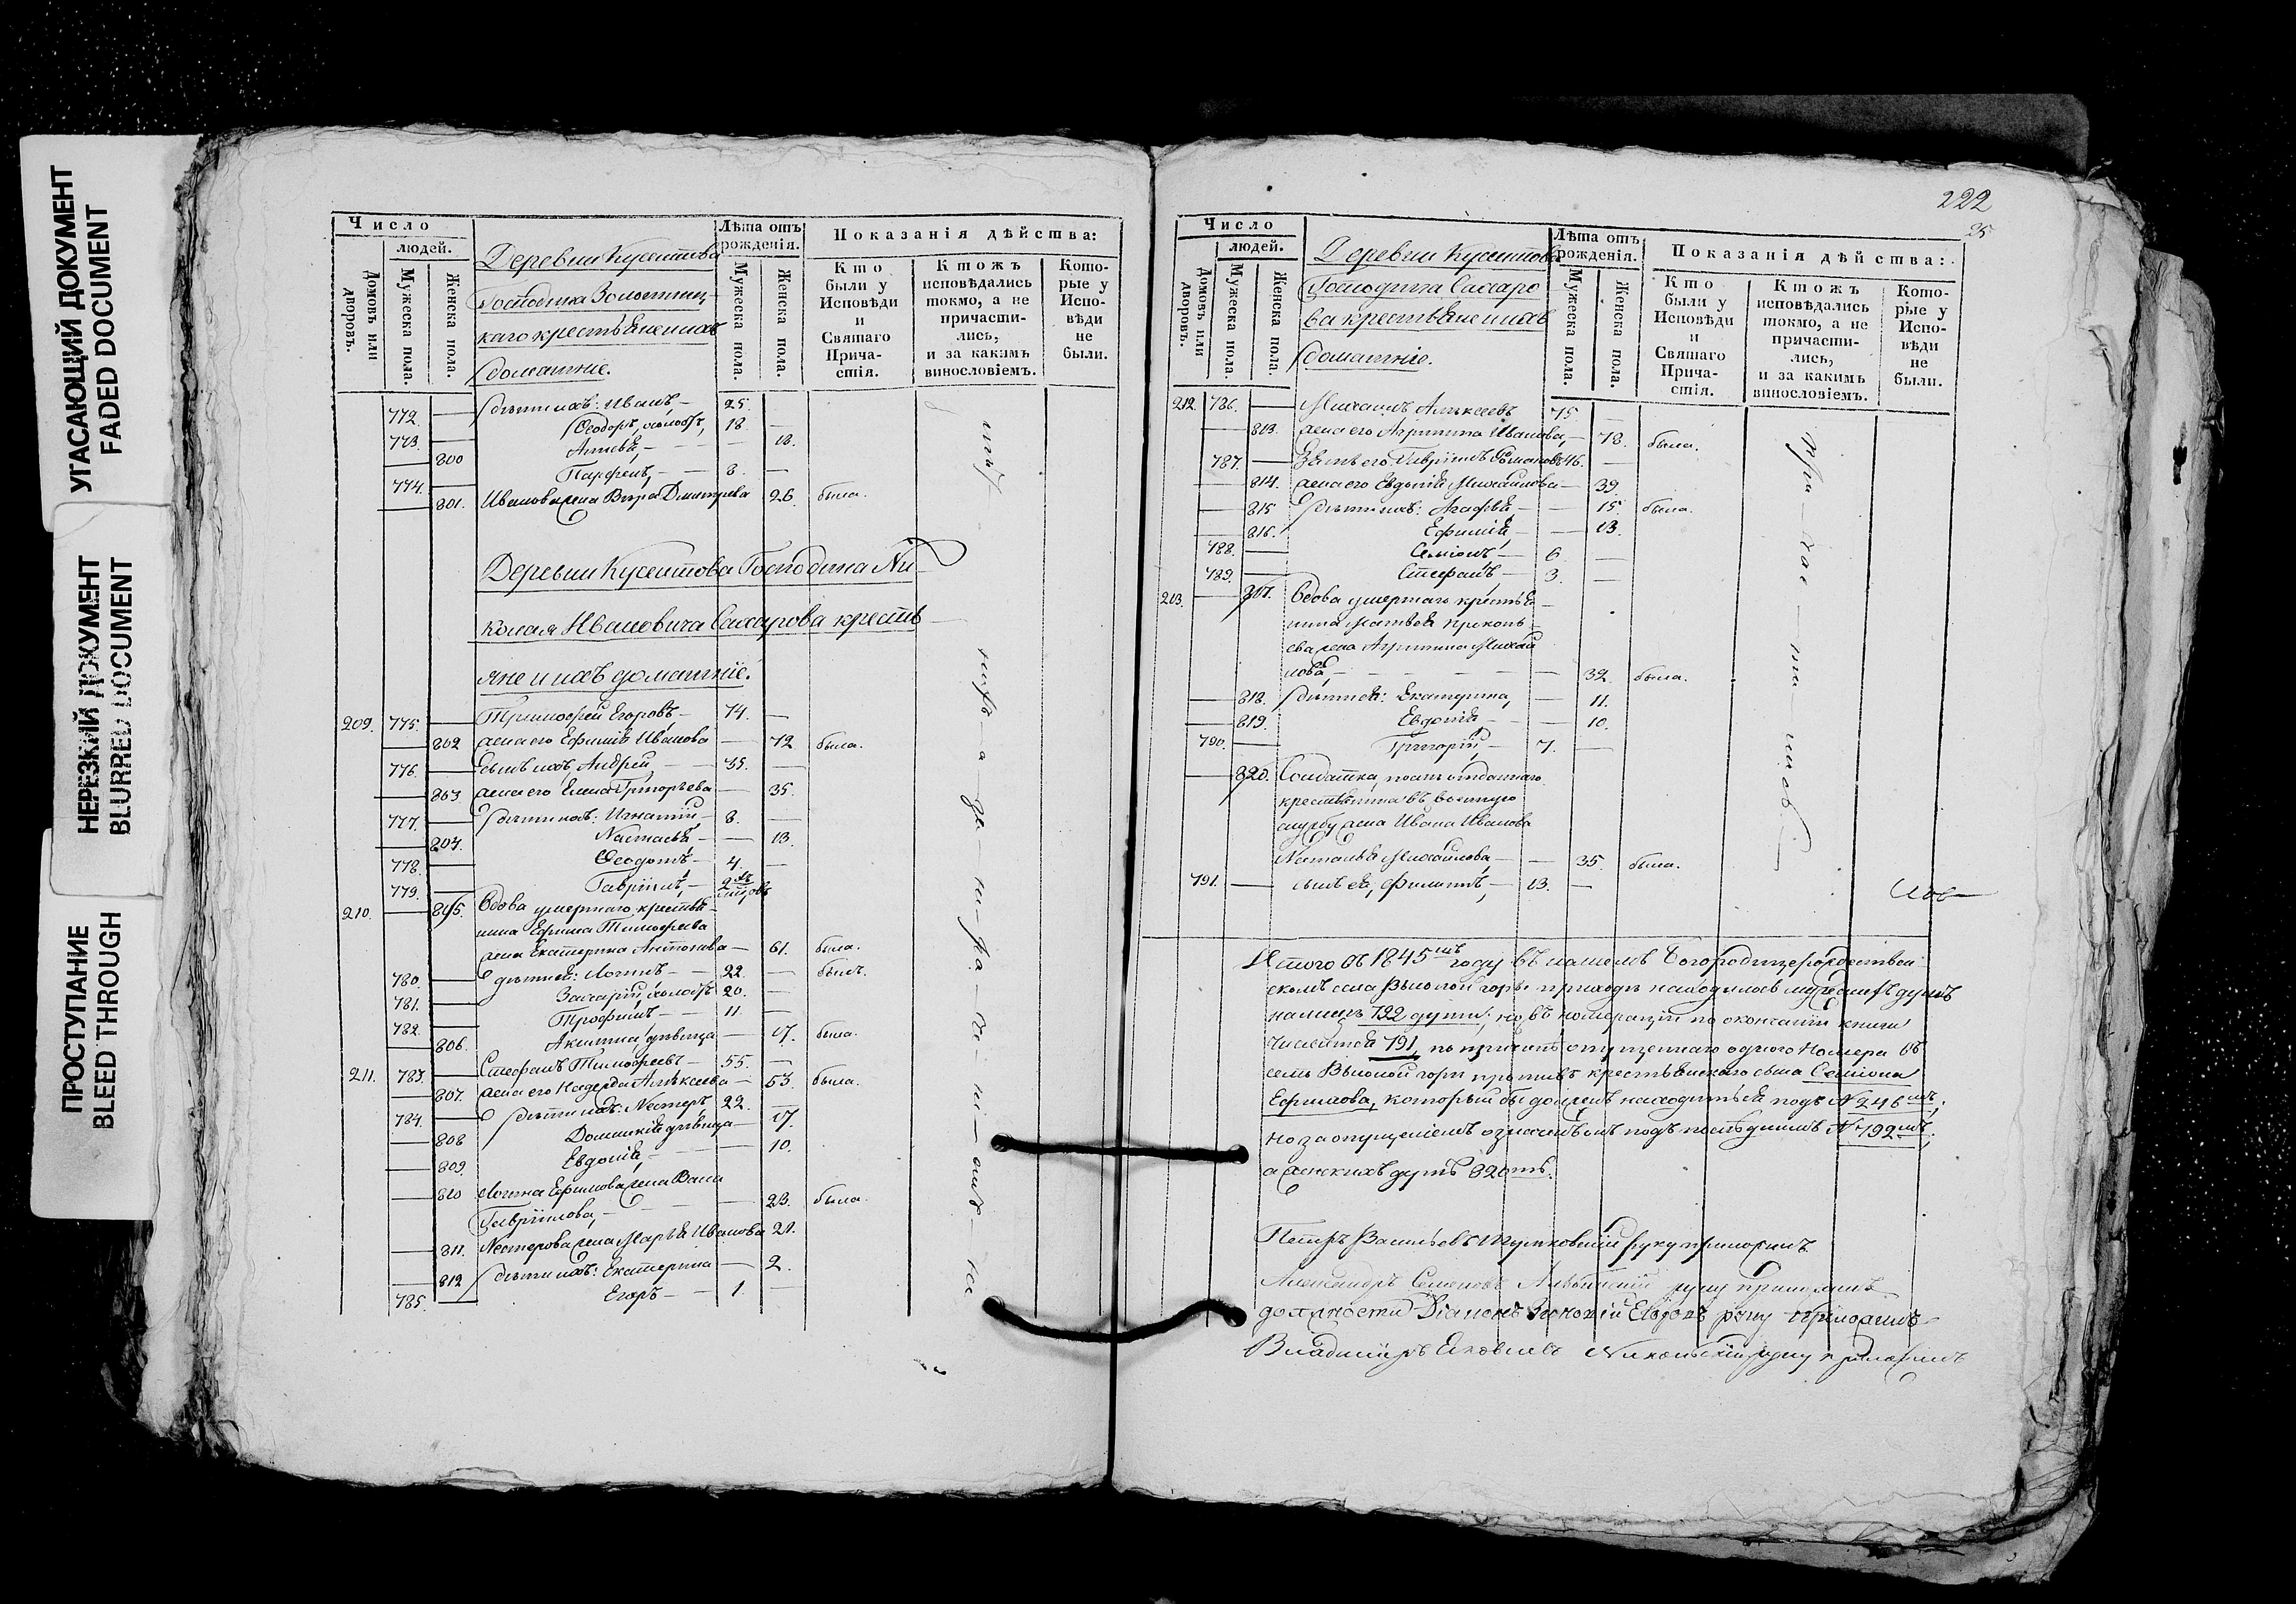 УГАСАЮЩИЙ ДОКУМЕНТ
FADED DOCUMENT
НЕРЕЗКИЙ ДОКУМЕНТ
BLURRED DOCUMENT
ПРОСТУПАНИЕ
BLEED THROUGH
Число
людей.
Домовъ или дворовъ.
Мужеска пола.
Женска пола.
Деревни Кусетова
Господина
каго крестьяне и ихъ
домашніе.
Лѣта отъ рожденія.
Мужеска пола.
Женска пола.
Показанія дѣйства:
Кто были у Исповѣди и Святаго Причастія.
Ктожъ исповѣдались токмо, а не причастились, и за какимъ винословіемъ.
Которые у Исповѣди не были.
772. дѣти ихъ: Иванъ, 25.
773. Ѳеодоръ, холостъ, 18
800 18.
774. Парфенъ, 8.
801. Иванова жена Вѣра Дмитріева 26 была.
Деревни Кусетова Господина Ни-
колая Ивановича Сахарова кресть-
яне и ихъ домашніе.
209. 775. Тимофей Егоровъ 74.
802 жена его Ефимія Иванова 72 была.
776. сынъ ихъ, Андрей, 35.
803 жена его Елена Григорьева 35.
777. дѣти ихъ: Игнатій 8.
804. Настасья 13.
778. Ѳеодотъ 4.
779. Гавріилъ, 2
210. 805. Вдова умершаго крестья-
нина Ефима Тимофеева
жена Екатерина Антонова 61. была.
780. дѣти ея: Логинъ 22. былъ.
781. Захарій холостъ 20.
782. Трофимъ 11.
806. Акилина, дѣвица 17. была.
211. 783. Стефанъ Тимофеевъ 55.
807. жена его Надежда Алексеева 53. была.
784. дѣти ихъ: Несторъ 22.
808 Домникія дѣвица 17.
809. Евдокія, 10.
810 Логина Ефимова жена
Гавріилова, 23. была.
811. Нестерова жена Марья Иванова 21.
812 дѣти ихъ: Екатерина 2.
785. Егоръ 1.
222
25
Число
людей.
Домовъ или дворовъ.
Мужеска пола.
Женска пола.
Деревни Кусетова
Господина Сахаро
ва крестьяне и ихъ
домашніе.
Лѣта отъ рожденія.
Мужеска пола.
Женска пола.
Показанія дѣйства:
Кто были у Исповѣди и Святаго Причастія.
Ктожъ исповѣдались токмо, а не причастились, и за какимъ винословіемъ.
Которые у Исповѣди не были.
212. 786. Михаилъ Алексеевъ 75
813. жена его Агрипина Иванова, 78. была.
787. Зять его Гавріилъ 46.
814. жена его Евдокія Михайлова 39
815 дѣти ихъ: Агафья, 15 была.
816. Ефимія, 13.
788. Семіонъ 6.
789. Стефанъ 3.
213. 817. Вдова умершаго крестья-
нина Матвея Прокопь-
ева жена Агрипина Михай
лова, 32. была.
818. дѣти ея: Екатерина, 11.
819. Евдокія 10.
790. Григорій, 7.
820. Солдатка,
крестьянина въ военную
службу жена Ивана Иванова
Наталья Михайлова, 35. была.
791. сынъ ея, Филиппъ, 13.
Итого въ 1845мъ году въ нашемъ Богородицерождествен
скомъ села Высокой горы приходѣ находилось мужескъ душъ
792 души; но въ номераціи по окончаніи книги
791, по причинѣ опущеннаго одного Номера въ
селѣ Высокой горѣ противъ крестьянскаго сына Семіона
Ефимова, который бы долженъ находиться подъ № 246мъ,
но за опущеніемъ означенъ подъ послѣднимъ № 792мъ;
а женскихъ душъ 820ть.
Петръ Васильевъ руку приложилъ
Александръ Семеновъ руку приложилъ
должности Діаконъ руку приложилъ
Владиміръ Яковлевъ Никольскій руку приложилъ